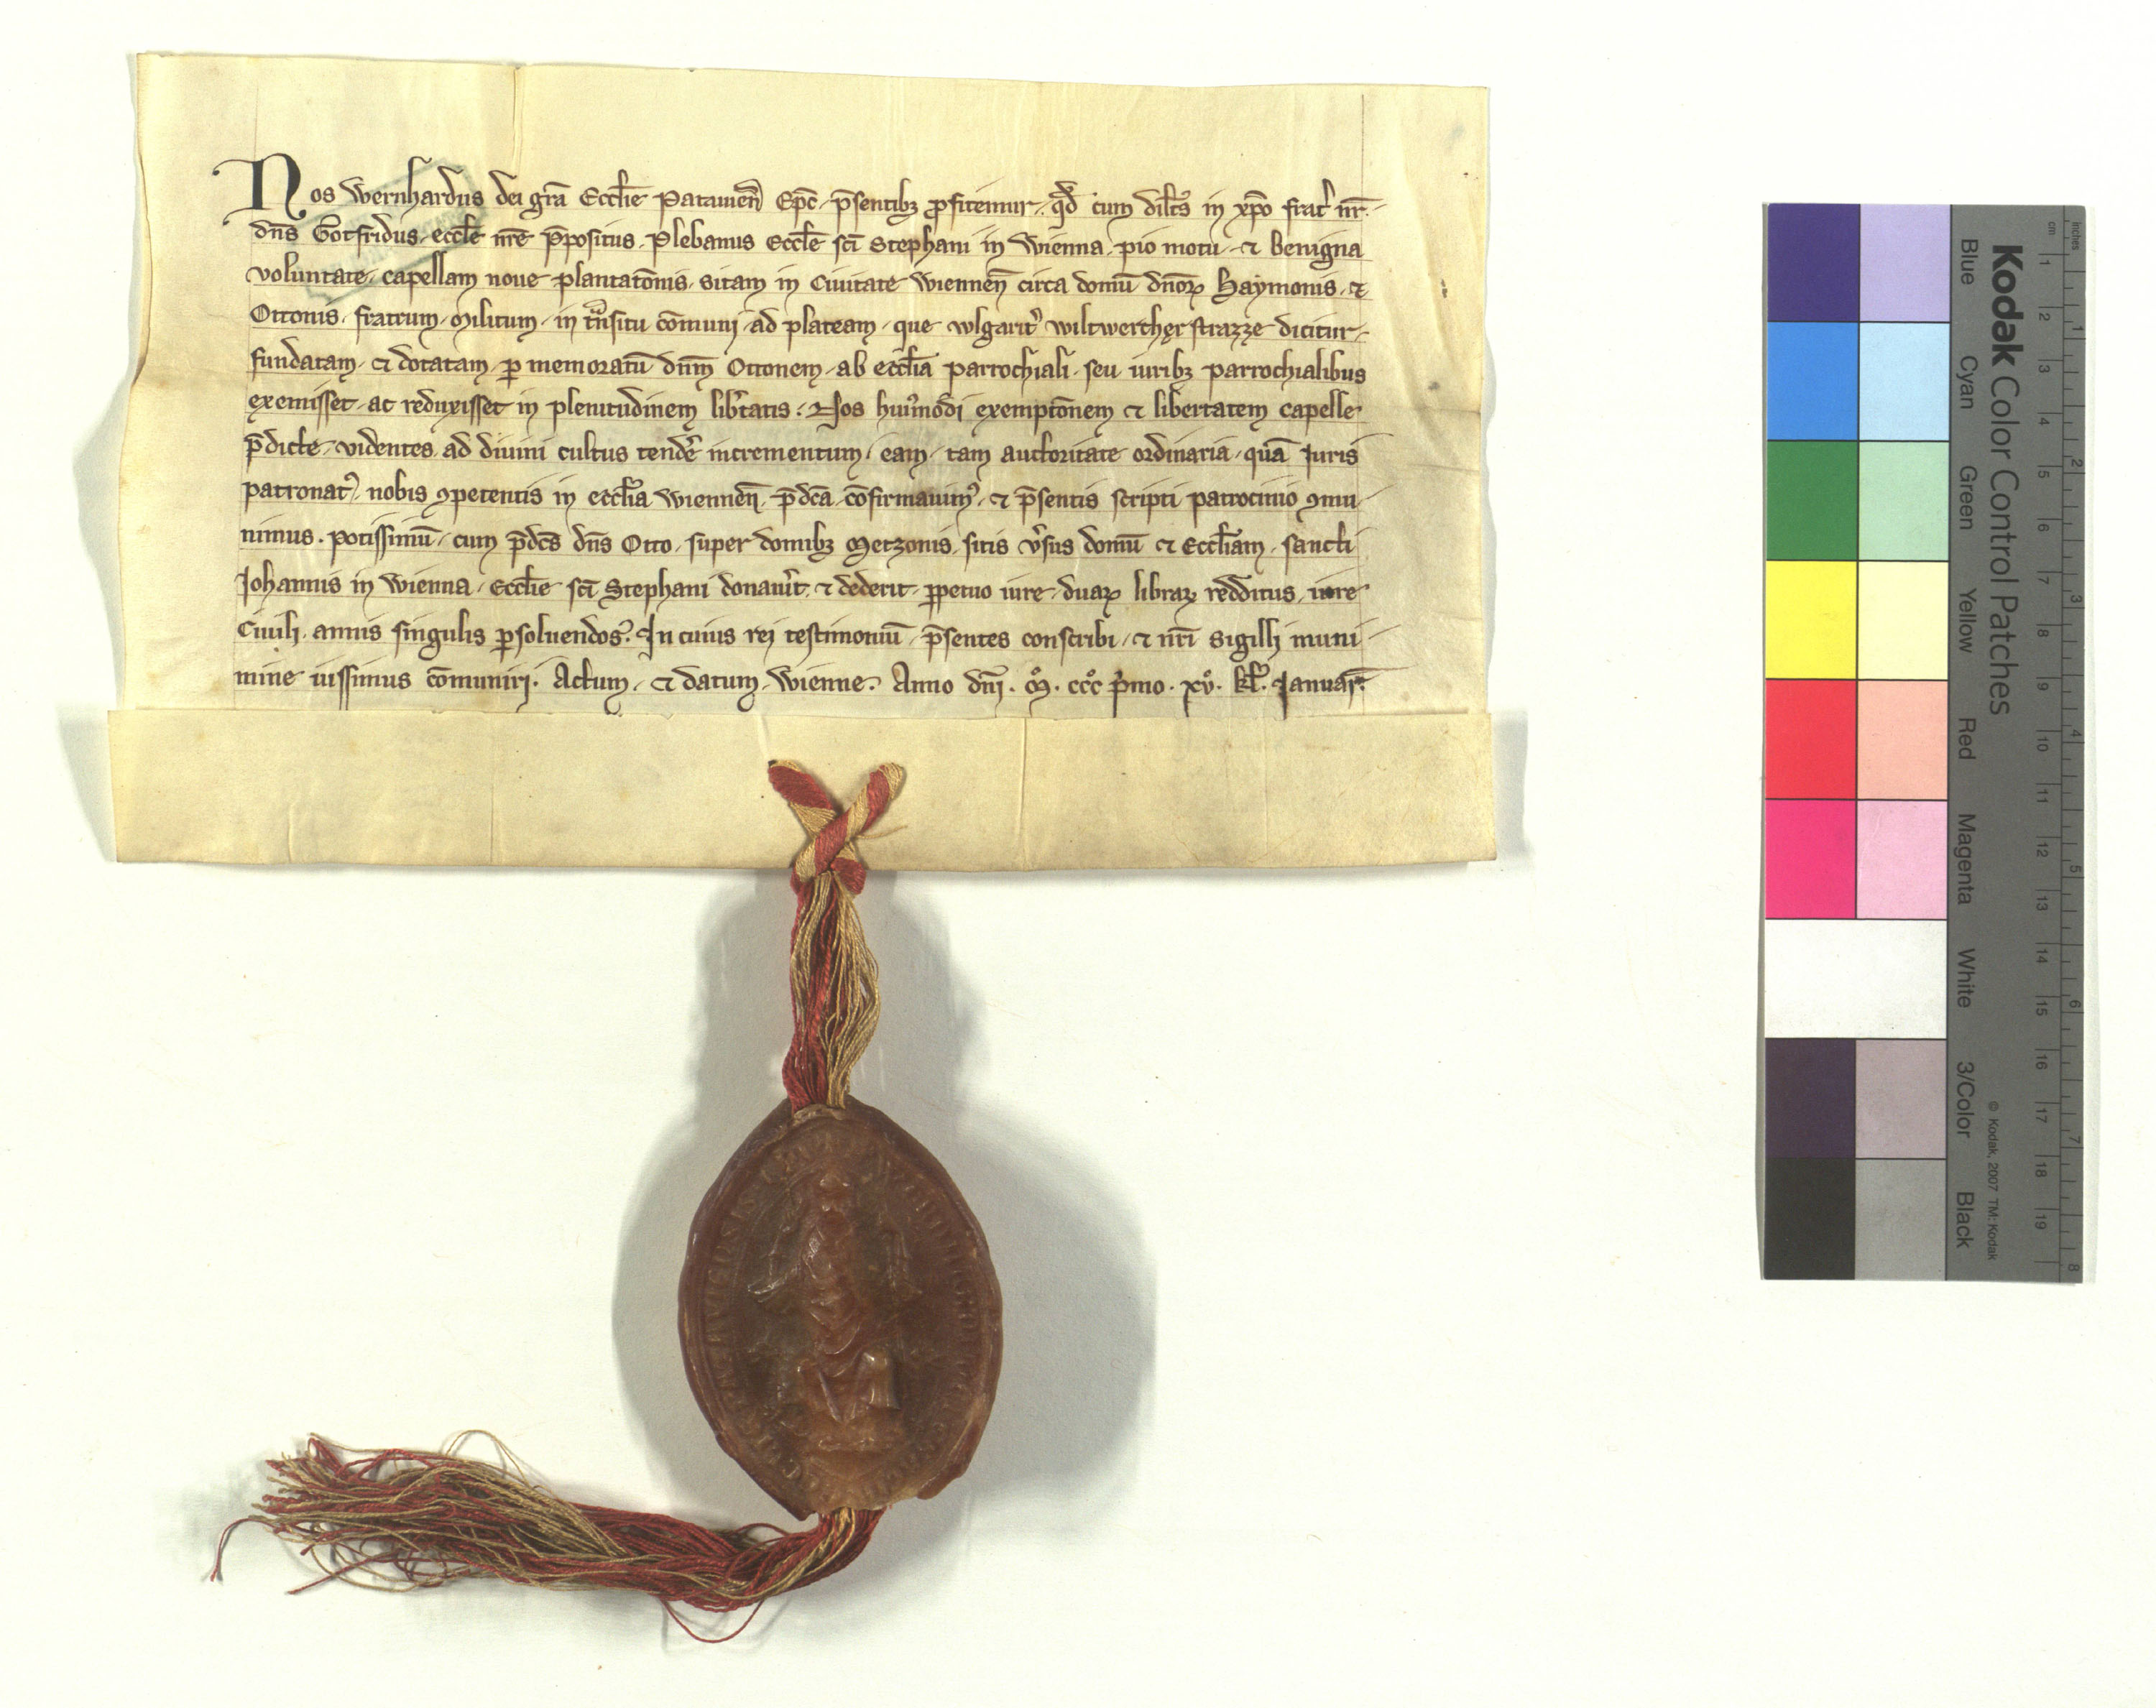 Nos Wernhardus dei gr̄a Eccl̄ie Patauien̄ Ep̄c p̄sentibꝫ ꝓfitemur. qd̄ cum dil̄cs in xp̄o frat̄ nr̄.
dn̄s Gotfridus. eccl̄e nr̄e p̄positus. Plebanus Eccl̄e sc̄i Stephani in Wienna. pio motu. et benigna
voluntate. capellam noue plantatōnis. sitam in Ciuitate Wiennen̄ circa domū dn̄oꝝ Haymonis. et
Ottonis. fratrum. Militum. in tn̄situ cōmuni. ad plateam. que wlgarit̄ wiltwercher strazze dicitur.
fundatam. et dotatam. ꝑ memoratū dn̄m Ottonem. ab eccl̄ia parrochiali. seu iuribꝫ parrochialibus
exemisset. ac reduxisset in plenitudinem lib̄tatis. Nos huiꝰmodi exemptōnem et libertatem capelle
p̄dicte. videntes. ad diuini cultus tend̄e incrementum. eam. tam auctoritate ordinaria. quā Juris
patronatꝰ. nobis ꝯpetentis in eccl̄ia Wiennen̄. p̄dc̄a. cōfirmauimꝰ. et p̄sentis scripti patrocinio ꝯmu
nimus. potissimū. cum p̄dc̄s dn̄s Otto. super domibꝫ Metzonis. sitis v̄sus domū et Eccl̄iam. sancti
Johannis in Wienna. Eccl̄ie sc̄i Stephani donau̅it. et dederit. ꝑpetuo iure. duaꝝ libraꝝ redditus. iure
Ciuili. annis singulis ꝑsoluendos. In cuius rei testimoniū. p̄sentes conscribi. et nr̄i sigilli muni
mine iussimus cōmuniri. Actum. et datum. Wienne. Anno dn̄i. M̊. ccc̊ p̄mo. xv̊. kl̄. Januar̄.
Kodak Color Control Patches
Blue
Cyan
Green
Yellow
Red
Magenta
White
3/Color
Black
© Kodak, 2007 TM: Kodak
cm 1 2 3 4 5 6 7 8 9 10 11 12 13 14 15 16 17 18 19
inches 1 2 3 4 5 6 7 8